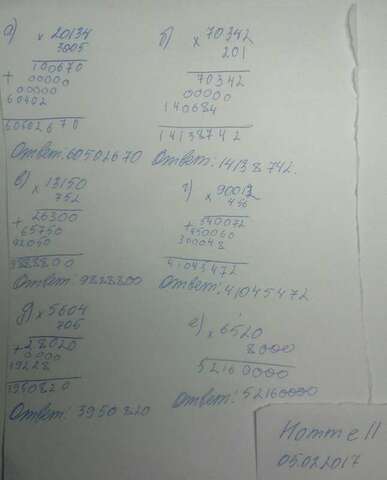 а) × 20134
3005
100670
+ 00000
00000
60402
60502670
Ответ: 60502670
б) × 70342
201
70342
00000
140684
14138742
Ответ: 14138742.
в) × 13150
752
+ 26300
65750
92050
9888800
Ответ: 9888800
г) × 90012
456
+ 540072
450060
360048
41045472
Ответ: 41045472
д) × 5604
705
+ 28020
0000
39228
3950820
Ответ: 3950820
е) × 6520
8000
52160000
Ответ: 52160000
Homme11
05.02.2017